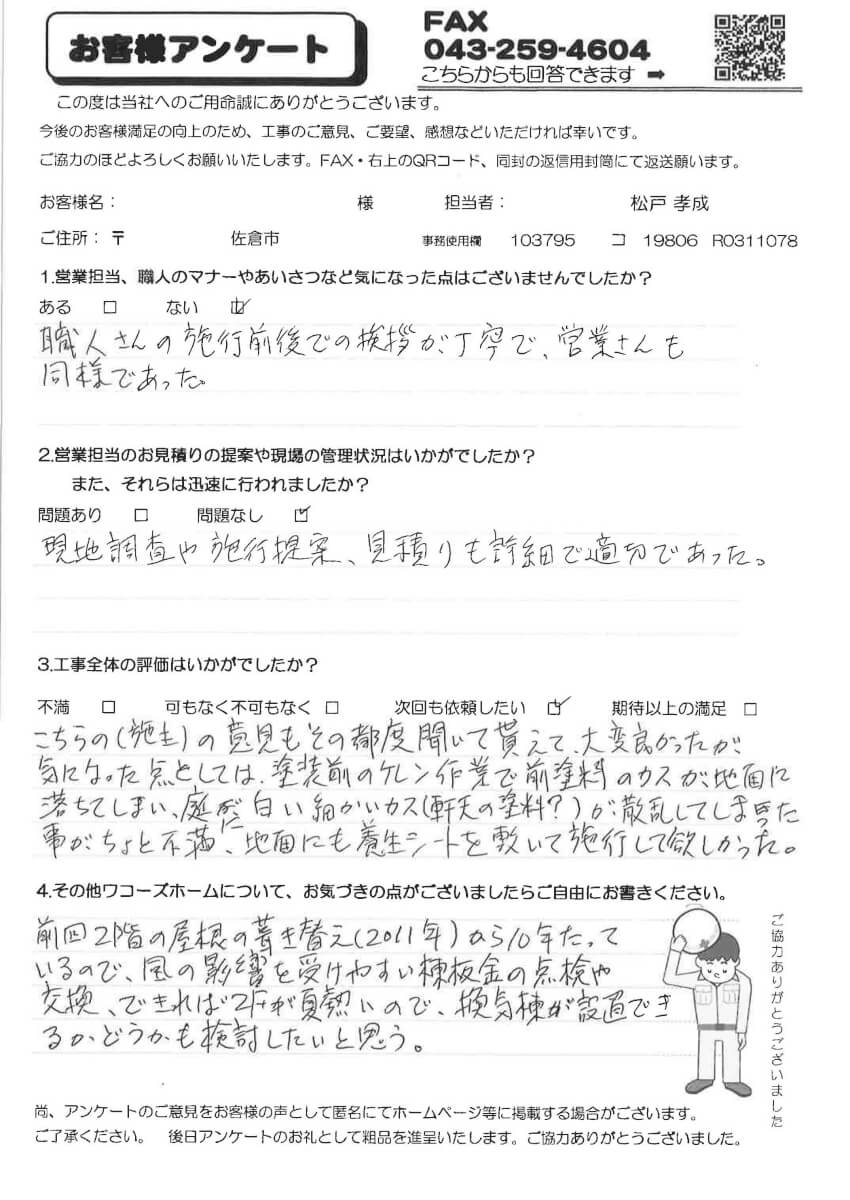 お客様アンケート
FAX
043-259-4604
こちらからも回答できます ➡
この度は当社へのご用命誠にありがとうございます。
今後のお客様満足の向上のため、工事のご意見、ご要望、感想などいただければ幸いです。
ご協力のほどよろしくお願いいたします。FAX・右上のQRコード、同封の返信用封筒にて返送願います。
お客様名： 様 担当者： 松戸 孝成
ご住所：〒 佐倉市 事務使用欄 103795 コ 19806 R0311078
1.営業担当、職人のマナーやあいさつなど気になった点はございませんでしたか？
ある □ ない ☑
職人さんの施行前後での挨拶が丁寧で、営業さんも
同様であった。
2.営業担当のお見積りの提案や現場の管理状況はいかがでしたか？
また、それらは迅速に行われましたか？
問題あり □ 問題なし ☑
現地調査や施行提案、見積りも詳細で適切であった。
3.工事全体の評価はいかがでしたか？
不満 □ 可もなく不可もなく □ 次回も依頼したい ☑ 期待以上の満足 □
こちらの(施主)の意見もその都度聞いて貰えて、大変良かったが
気になった点としては、塗装前のケレン作業で前塗料のカスが地面に
落ちてしまい、庭が白い細かいカス(軒天の塗料？)が散乱してしまった
事がちょと不満、地面にも養生シートを敷いて施行して欲しかった。
4.その他ワコーズホームについて、お気づきの点がございましたらご自由にお書きください。
前回2階の屋根の葺き替え(2011年)から10年たって
いるので、風の影響を受けやすい棟板金の点検や
交換、できれば2Fが夏熱いので、換気棟が設置でき
るかどうかも検討したいと思う。
ご協力ありがとうございました
尚、アンケートのご意見をお客様の声として匿名にてホームページ等に掲載する場合がございます。
ご了承ください。 後日アンケートのお礼として粗品を進呈いたします。ご協力ありがとうございました。